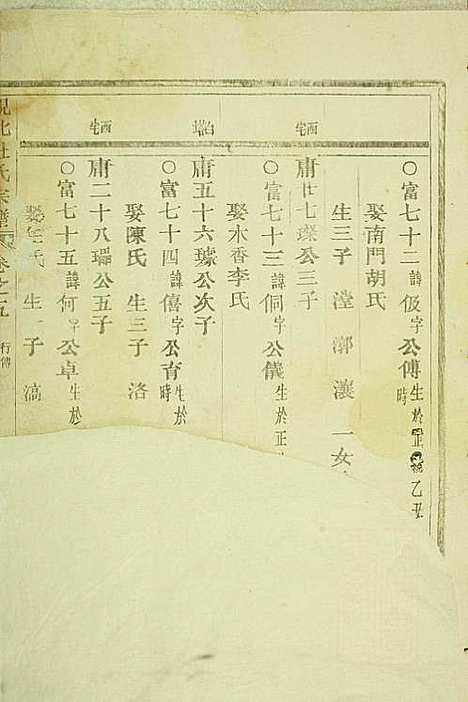 ○富七十二諱伋字公傅生於正統乙丑時
娶南門胡氏
生三子 瀅 漷 瀼 一女
西宅
庸廿七璨公三子
○富七十三諱侗字公儀生於正
娶木香李氏
白塔
庸五十六璩公次子
○富七十四諱僖字公育生於時
娶陳氏 生三子 洛
西宅
庸二十八瑠公五子
○富七十五諱何字公卓生於
娶任氏 生一子 滈
杜氏宗譜 卷之五 行傳